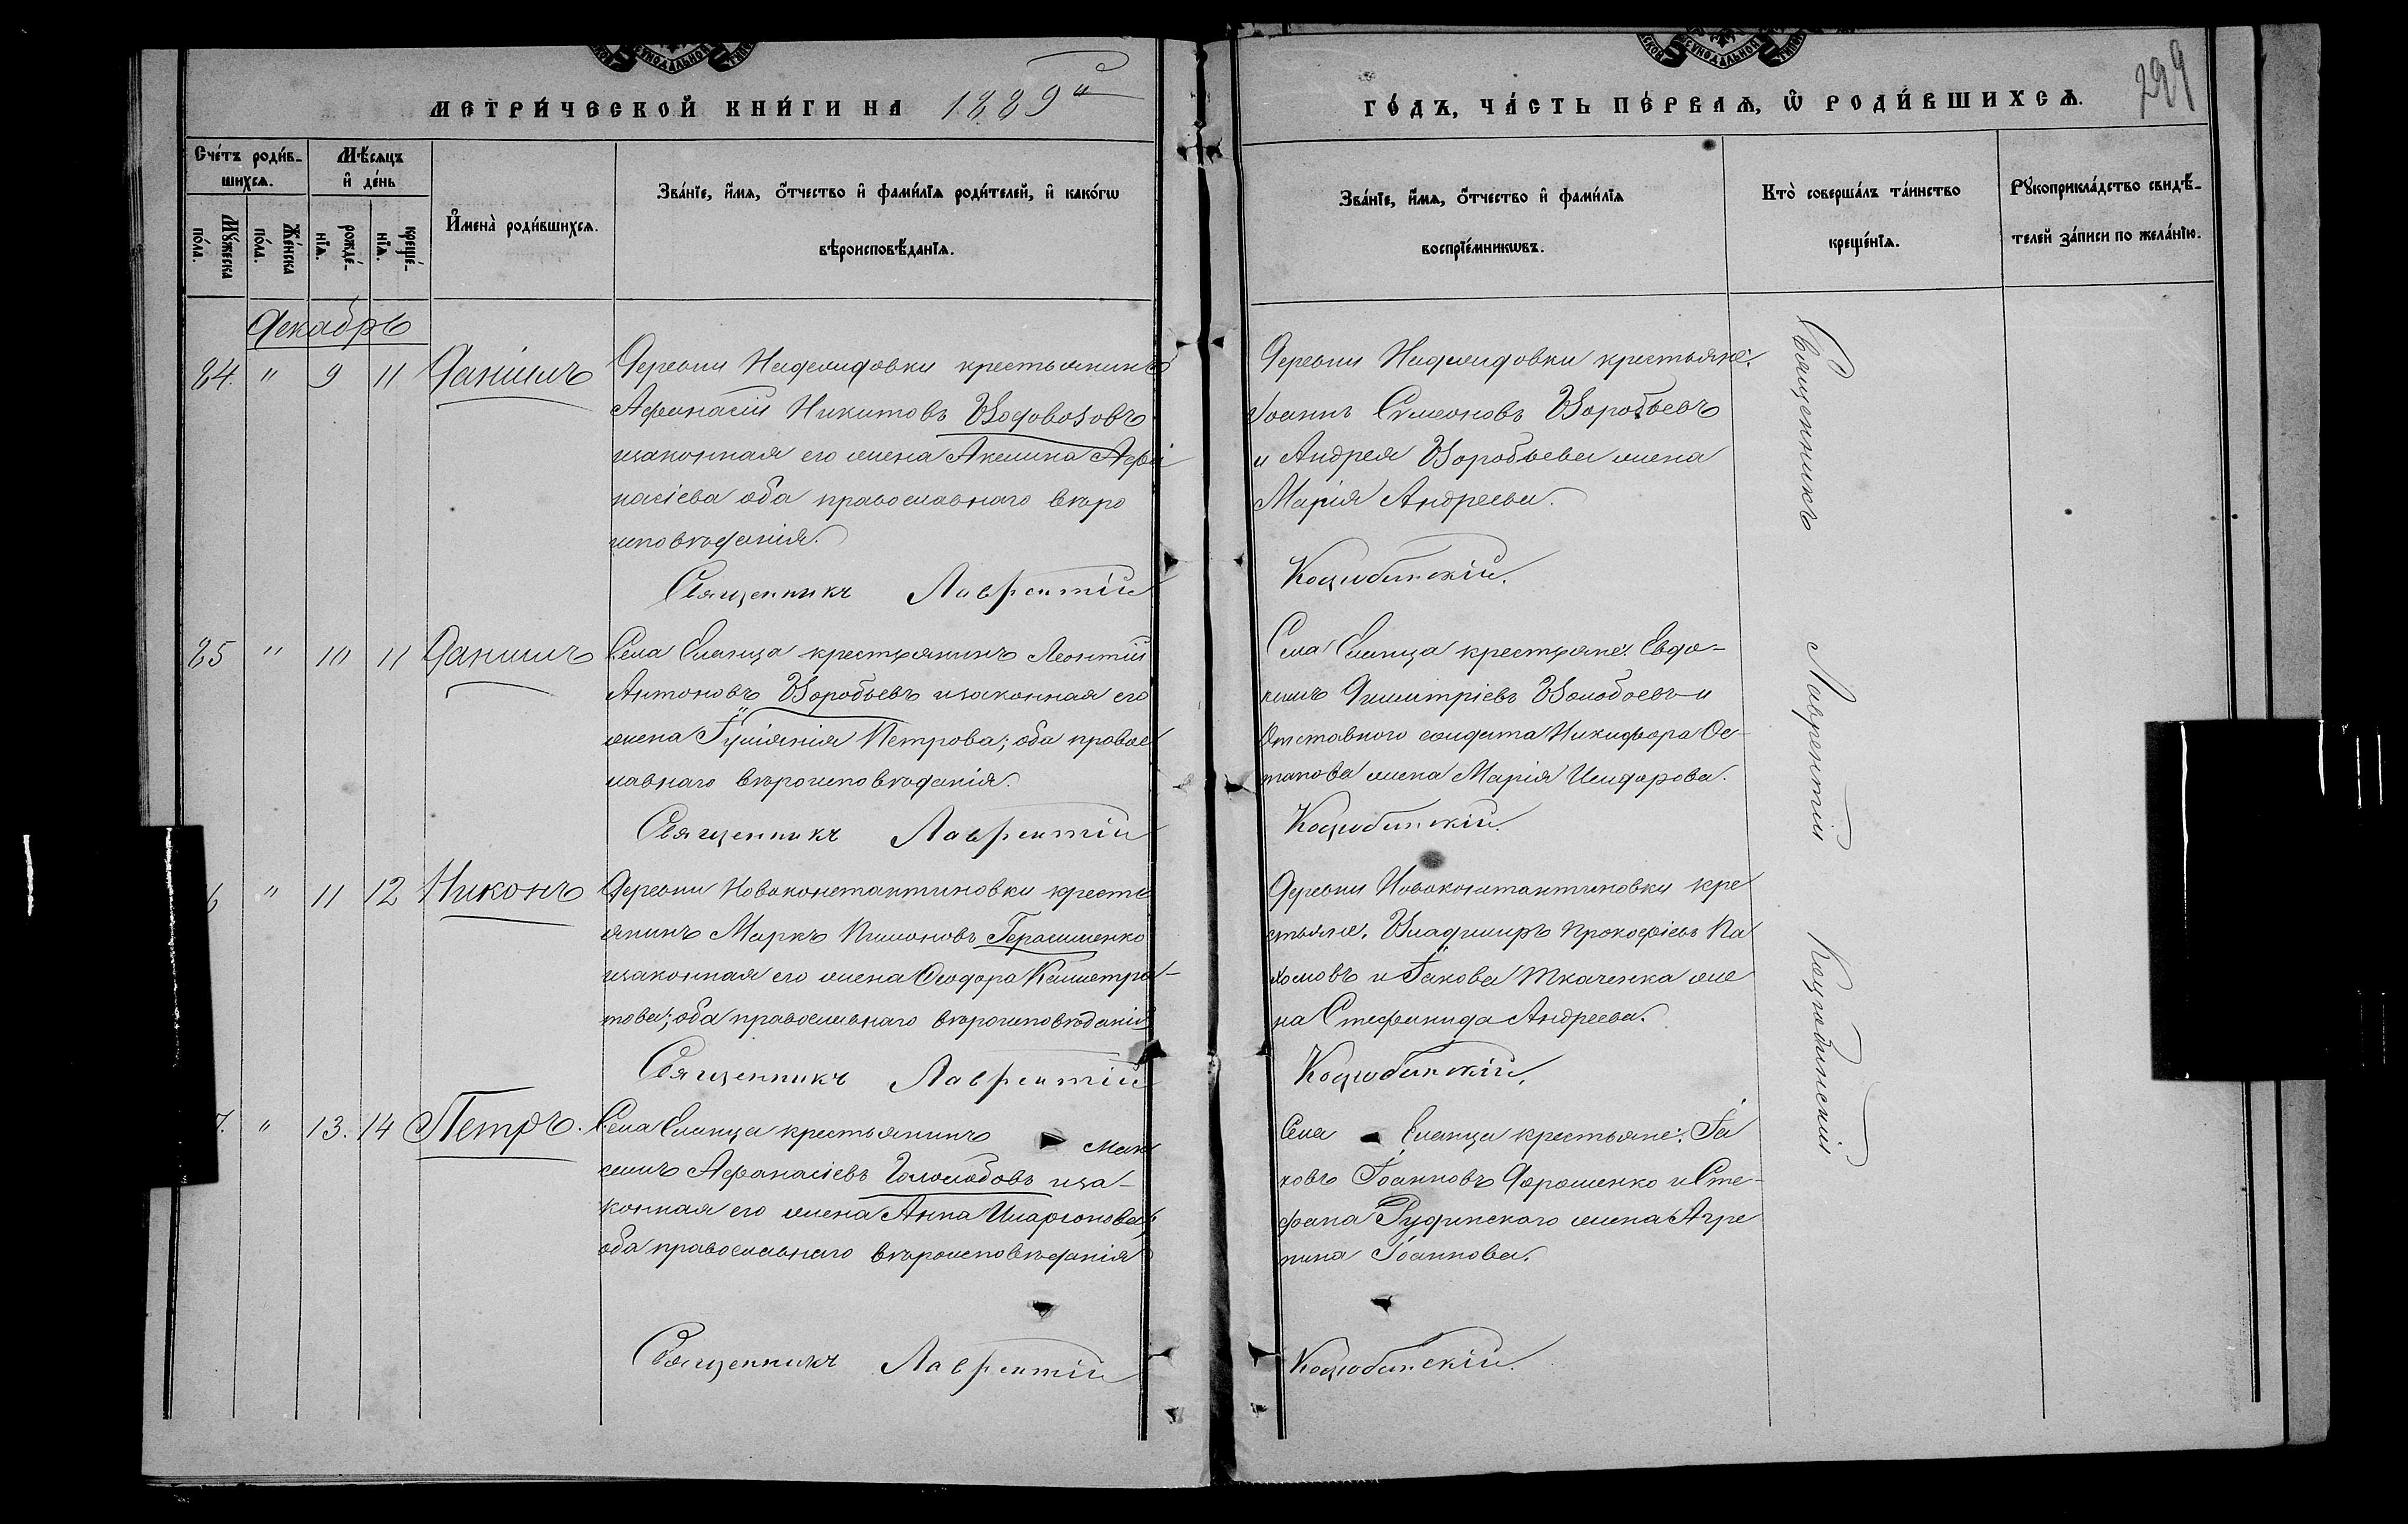 МЕТРИ́ЧЕСКОЙ КНИ́ГИ НА 1889й
ГО́ДЪ, ЧА́СТЬ ПЕ́РВАѦ, Ѿ РОДИ́ВШИХСѦ.
299
Сче́тъ роди́в-
шихсѧ.
Мѣ́сѧцъ
и҆ де́нь
Мꙋ́жеска
по́ла.
Же́нска
по́ла.
рожде́-
нїѧ.
креще́-
нїѧ.
И҆мена̀ роди́вшихсѧ.
Зва́нїе, и҆́мѧ, ѻ҆́тчество и҆ фами́лїѧ роди́телей, и҆ како́гѡ
вѣроисповѣ́данїѧ.
Зва́нїе, и҆́мѧ, ѻ҆́тчество и҆ фами́лїѧ
воспрїе́мникѡвъ.
Кто̀ соверша́лъ та́инство
креще́нїѧ.
Рꙋкоприкла́дство свидѣ́-
телей за́писи по жела́нїю.
Декабрь
84. " 9 11 Данiилъ
Деревни крестьянинъ
Афанасiй Никитовъ Водовозовъ
изаконная его жена Акилина Афа
насiева оба православнаго вѣро
исповѣданiя.
Священникъ Лаврентiй
Деревни крестьяне:
Іоаннъ Симеоновъ Воробьевъ
и Андрея Воробьева жена
Марiя Андреева.
Коцюбинскiй.
85 " 10 11 Данiилъ
Села Еланца крестьянинъ Леонтiй
Антоновъ Воробьевъ изаконная его
жена Іулiанiя Петрова; оба правос
лавнаго вѣроисповѣданiя.
Священникъ Лаврентiй
Села Еланца крестьяне: Евдо-
кимъ Димитрiевъ и
отставного солдата Никифора Ос-
тапова жена Марiя Исидорова.
Коцюбинскiй.
6 " 11 12 Никонъ
Деревни Новоконстантиновки кресть
янинъ Маркъ Пимоновъ Герасименко
изаконная его жена Феодора Калистра-
това; оба православнаго вѣроисповѣданiя
Священникъ Лаврентiй
Деревни Новоконстантиновки кре
стьяне. Владимиръ Прокофiевъ Па
хомовъ и Іакова Ткаченка же
на Стефанида Андреева.
Коцюбинскiй.
7. " 13. 14 Петръ.
Села Еланца крестьянинъ Мак
симъ Афанасiевъ Гололобовъ иза-
конная его жена Анна Иларiонова;
оба православнаго вѣроисповѣданiя
Священникъ Лаврентiй
Села Еланца крестьяне: Іа
ковъ Іоанновъ Дорошенко и Сте-
фана Рудинского жена Агре
пина Іоаннова.
Коцюбинскiй.
Священникъ Лаврентiй Коцюбинскiй